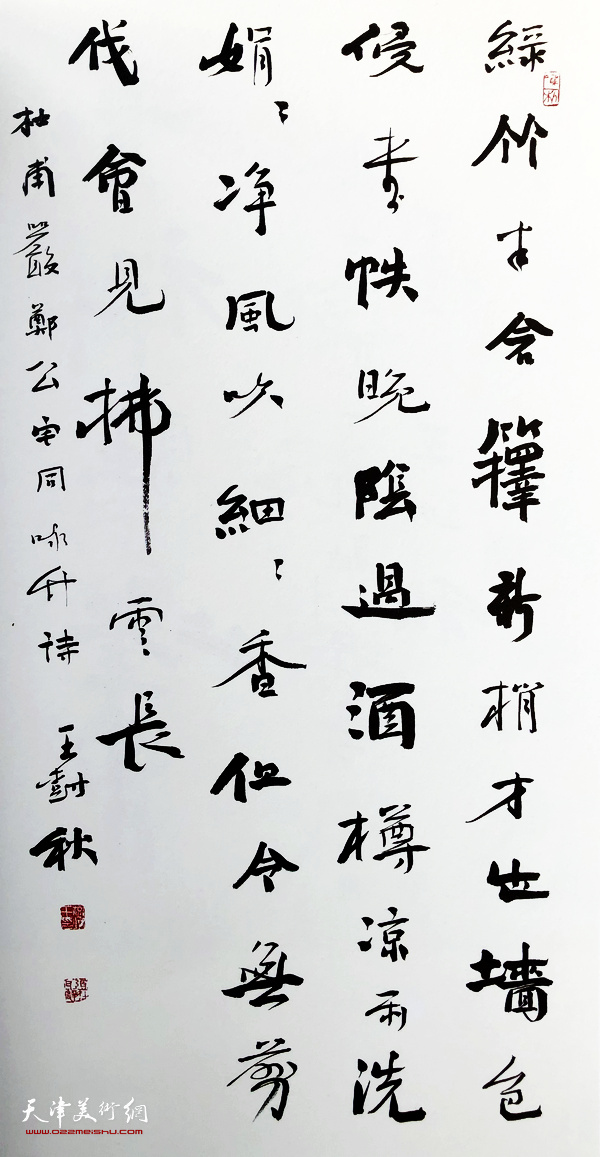 綠竹半含籜新梢才出墻色
侵書帙晚陰過酒樽凉雨洗
娟〻净風吹細〻香但令無剪
伐會見拂雲長
杜甫嚴鄭公宅同咏竹詩 王樹秋
天津美術網
www.022meishu.com